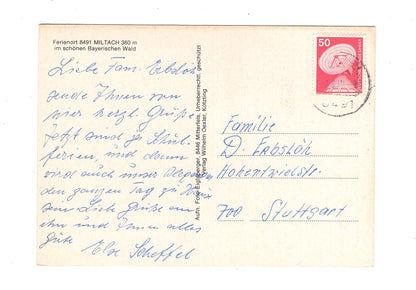 Ferienort 8491 MILTACH 360 m
im schönen Bayerischen Wald
Liebe Fam. Erbslöh
sende Ihnen von
hier herzl. Grüße
jetzt sind ja Schul-
ferien, und dann
sind auch unser
den ganzen Tag zu Haus
Liebe Grüße an
ihn und Ihnen alles
Gute
Else Scheffel
Aufn. Foto-Eiglsperger, 8446 Mitterfels, Urheberrechtl. geschützt
Verlag Wilhelm Oexler, Kötzting
50
8491
Familie
D. Erbslöh
Hohentwielstr.
700 Stuttgart